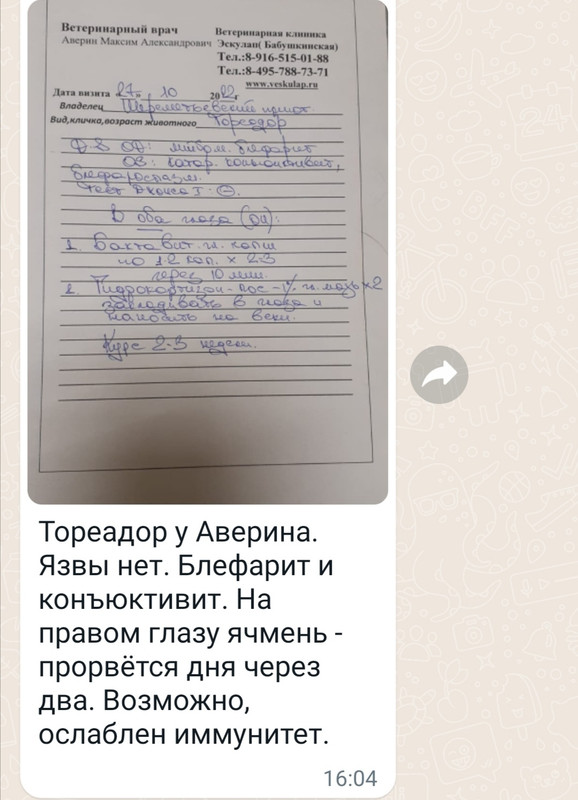 Ветеринарный врач
Аверин Максим Александрович
Ветеринарная клиника
Эскулап( Бабушкинская)
Тел.:8-916-515-01-88
Тел.:8-495-788-73-71
www.veskulap.ru
Дата визита 27 10 2022г
Владелец Шереметьевский приют
Вид,кличка,возраст животного Тореадор
DS OD: мейбом. блефарит
OS: катар. конъюнктивит,
блефароспазм.
тест Джонса I - ⊖.
В оба глаза (OU):
1. Бактавит гл. капли
по 1-2 кап. x 2-3
через 10 мин.
2. Гидрокортизон-пос-1% гл. мазь x2
закладывать в глаза и
наносить на веки.
Курс 2-3 недели.
Тореадор у Аверина.
Язвы нет. Блефарит и
конъюктивит. На
правом глазу ячмень -
прорвётся дня через
два. Возможно,
ослаблен иммунитет.
16:04